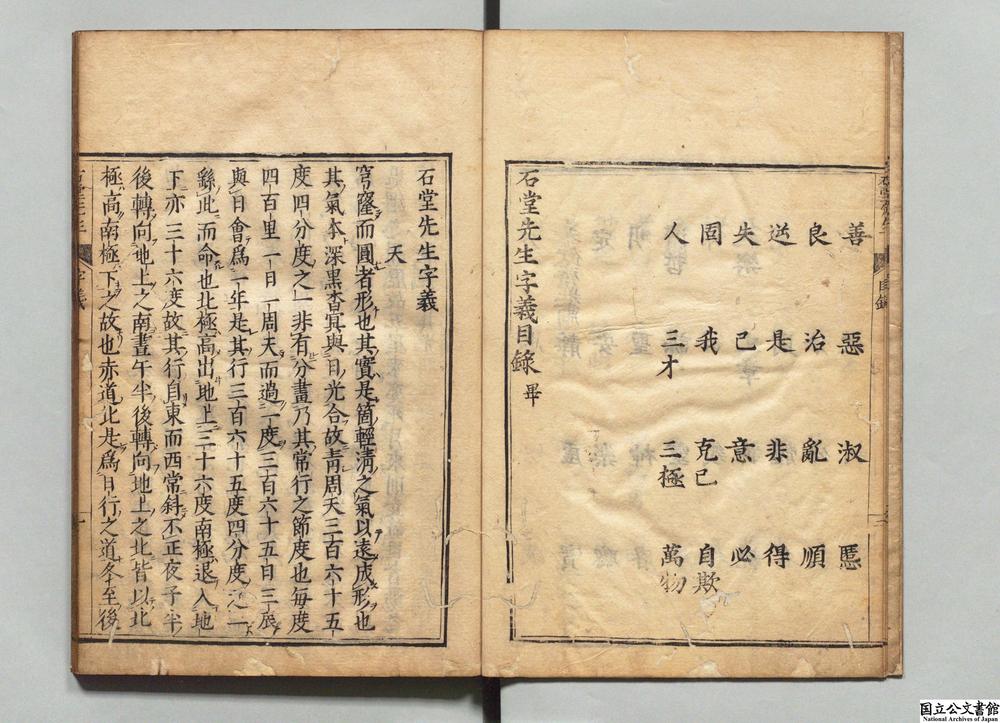 善　惡　淑　慝
良　治　亂　順
逆　是　非　得
失　己　意　必
固　我　克己　自欺
人　三才　三極　萬物
石堂先生字義目錄畢
石堂先生字義
天
穹窿而圓者形也其實是箇輕淸之氣以遠成形也
其氣本深黑杳冥與日光合故靑周天三百六十五
度四分度之一非有分畫乃其常行之節度也每度
四百里一日一周天而過一度三百六十五日三辰
與日會爲一年是其行三百六十五度四分度之一
繇此而命也北極高出地上三十六度南極退入地
下亦三十六度故其行自東而西常斜不正夜子半
後轉向地上之南晝午半後轉向地上之北皆以北
極高南極下之故也亦道北是爲日行之道冬至後
国立公文書館
National Archives of Japan